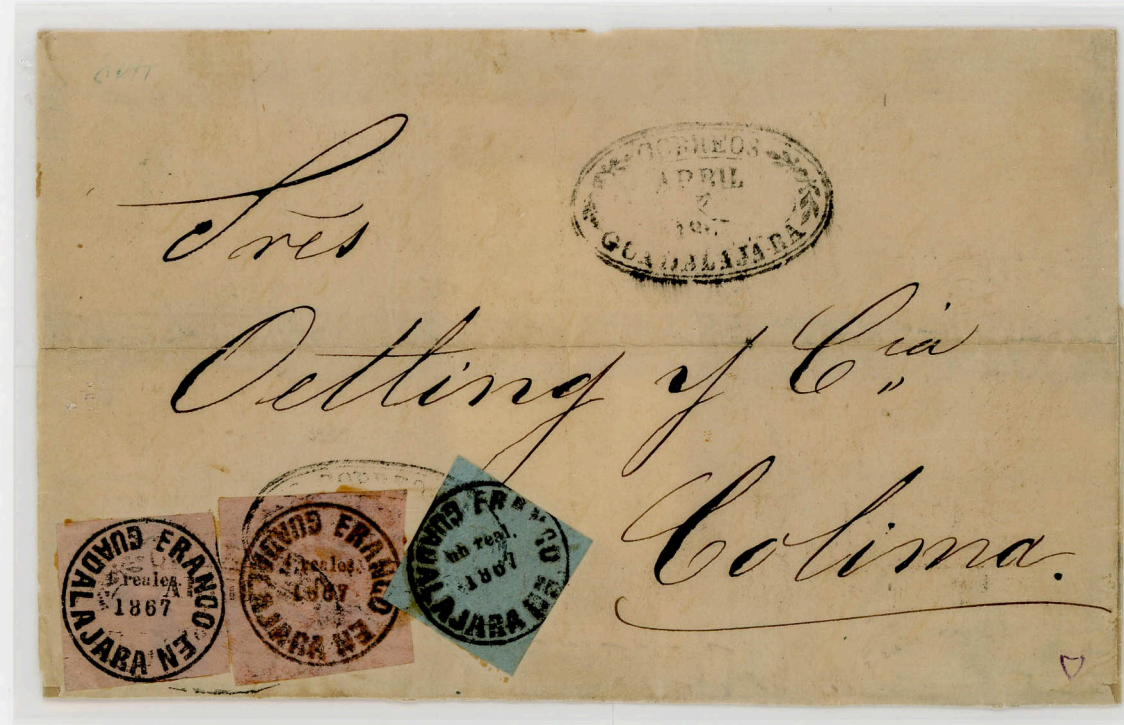 CORREOS
ABRIL
GUADALAJARA
Sres
Oetling y Cia
Colima.
CORREOS
FRANCO EN GUADALAJARA
reales
1867
FRANCO EN GUADALAJARA
reales
1867
FRANCO EN GUADALAJARA
real.
1867